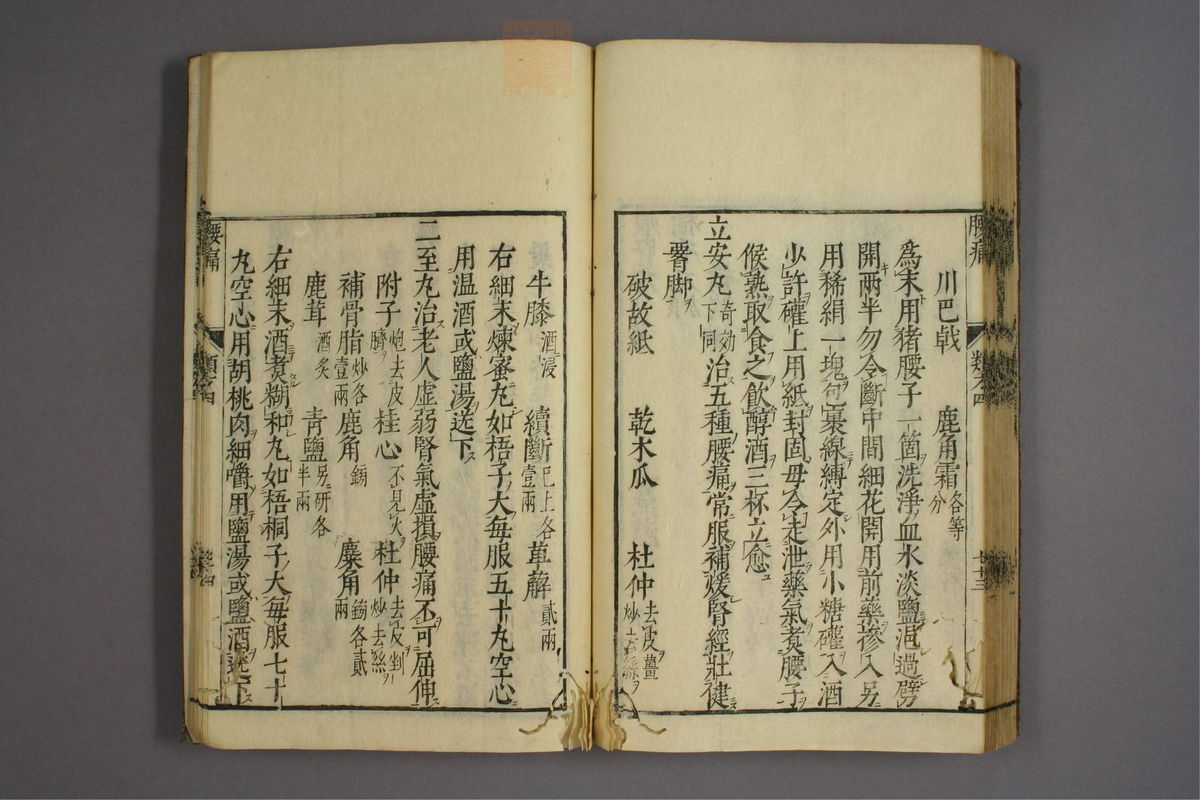 腰痛 類之四 十三
川巴戟 鹿角霜各等分
爲末用猪腰子一箇洗淨血水淡鹽泡過劈
開兩半勿令斷中間細花開用前藥摻入另
用稀絹一塊包裹線縛定外用小糖礶入酒
少許礶上用紙封固毋令走泄藥氣煮腰子
候熟取食之飲醇酒三杯立愈
立安丸奇効下同治五種腰痛常服補煖腎經壯健
腰脚
破故紙 乾木瓜 杜仲去皮薑炒去絲
牛膝酒浸 續斷已上各壹兩 萆薢貳兩
右細末煉蜜丸如梧子大每服五十丸空心
用温酒或鹽湯送下
二至丸治老人虚弱腎氣虚損腰痛不可屈伸
附子炮去皮臍 桂心不見火 杜仲去皮剉炒去絲
補骨脂炒各壹兩 鹿角鎊 麋角鎊各貳兩
鹿茸酒炙 青鹽另研各半兩
右細末酒煮糊和丸如梧桐子大每服七十
丸空心用胡桃肉細嚼用鹽湯或鹽酒送下
腰痛 類之四